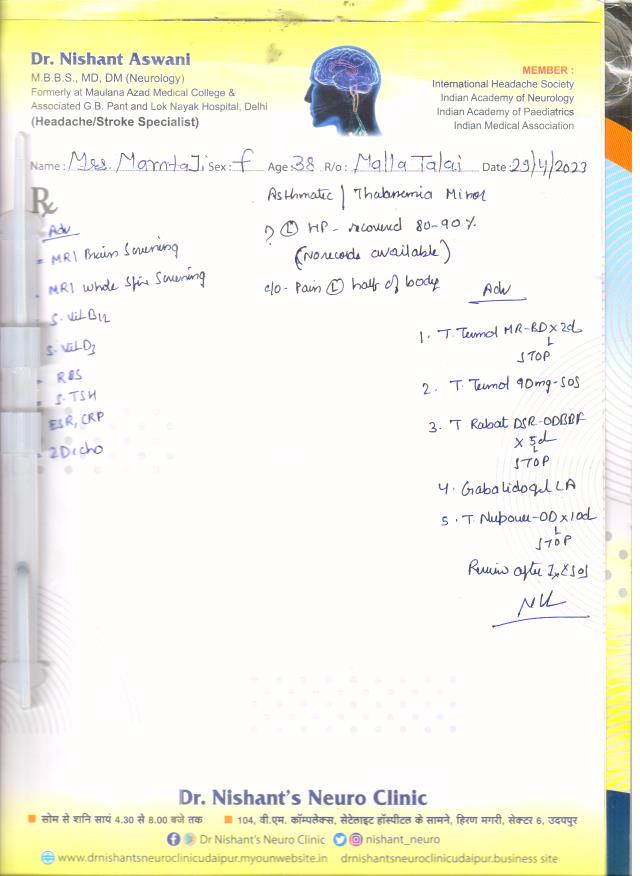 Dr. Nishant Aswani
M.B.B.S., MD, DM (Neurology)
Formerly at Maulana Azad Medical College &
Associated G.B. Pant and Lok Nayak Hospital, Delhi
(Headache/Stroke Specialist)
MEMBER :
International Headache Society
Indian Academy of Neurology
Indian Academy of Paediatrics
Indian Medical Association
Name : Mrs. Mamta Ji Sex : f Age : 38 R/o : Malla Talai Date : 29/4/2023
Rx
Asthmatic | Thalasemia Minor
? (L) HP - recovered 80-90%
(No records available)
c/o - Pain (L) half of body
Adv
- MRI Brain Screening
- MRI Whole Spine Screening
- S. Vit B12
S. Vit D3
- RBS
- S. TSH
ESR, CRP
- 2D echo
Adv
1. T. MR-BD x 2d
STOP
2. T. 90mg-SOS
3. T Rabat DSR-ODBBF
x 5d
STOP
4. Gabalidogel LA
5. T. -OD x 10d
STOP
Review after SOS
Dr. Nishant's Neuro Clinic
सोम से शनि सायं 4.30 से 8.00 बजे तक 104, वी.एम. कॉम्पलेक्स, सेटेलाइट हॉस्पीटल के सामने, हिरण मगरी, सेक्टर 6, उदयपुर
Dr Nishant's Neuro Clinic nishant_neuro
www.drnishantsneuroclinicudaipur.myownwebsite.in drnishantsneuroclinicudaipur.business site